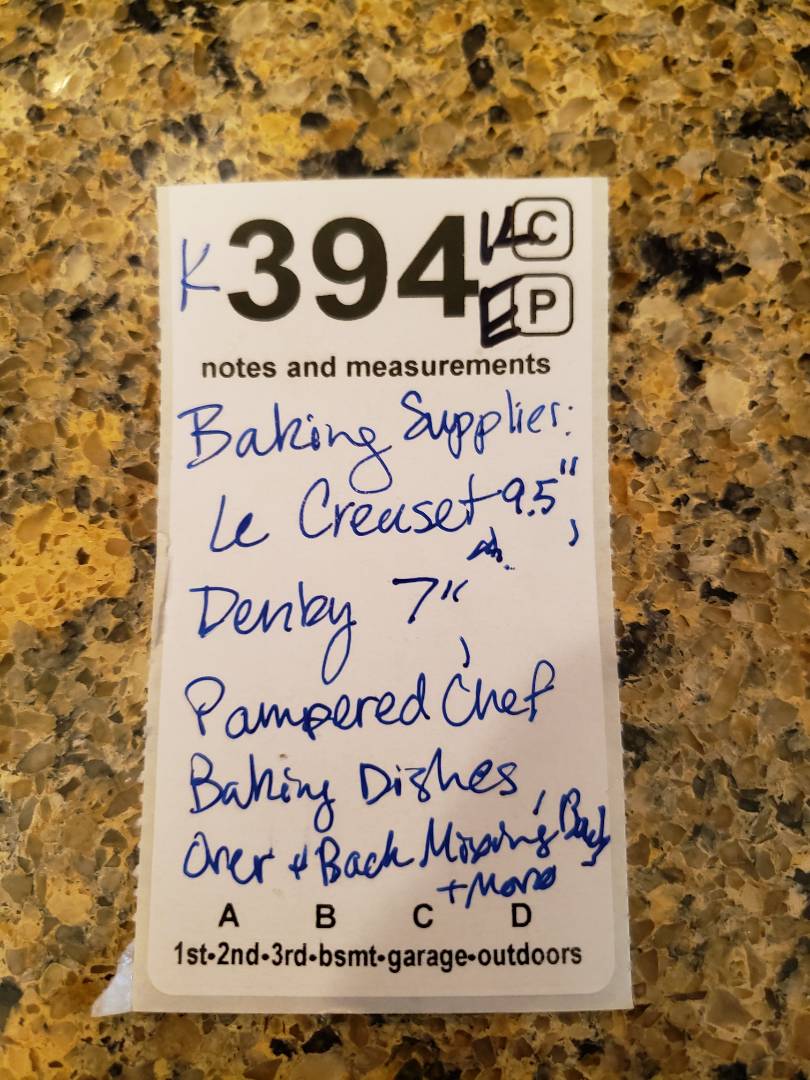 K 394 K C
E P
notes and measurements
Baking Supplies:
Le Creuset 9.5",
Denby 7",
Pampered Chef
Baking Dishes,
Over & Back Mixing
+ More
A B C D
1st•2nd•3rd•bsmt•garage•outdoors